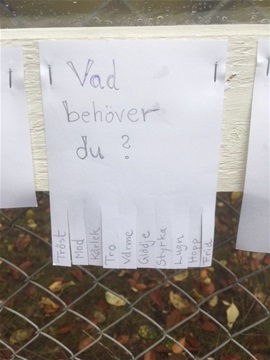 Vad
behöver
du?
Tröst
Mod
Kärlek
Tro
Värme
Glädje
Styrka
Lugn
Hopp
Frid